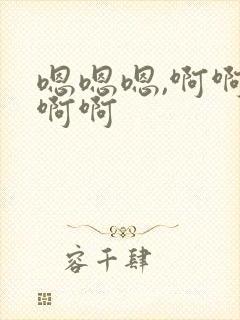 嗯嗯嗯,啊啊
啊啊
容千肆